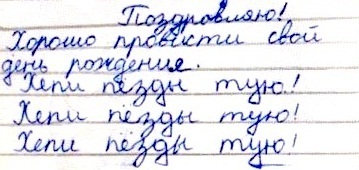 Поздровляю!
Хорошо провести свой
день рождения.
Хепи пёзды тую!
Хепи пёзды тую!
Хепи пёзды тую!